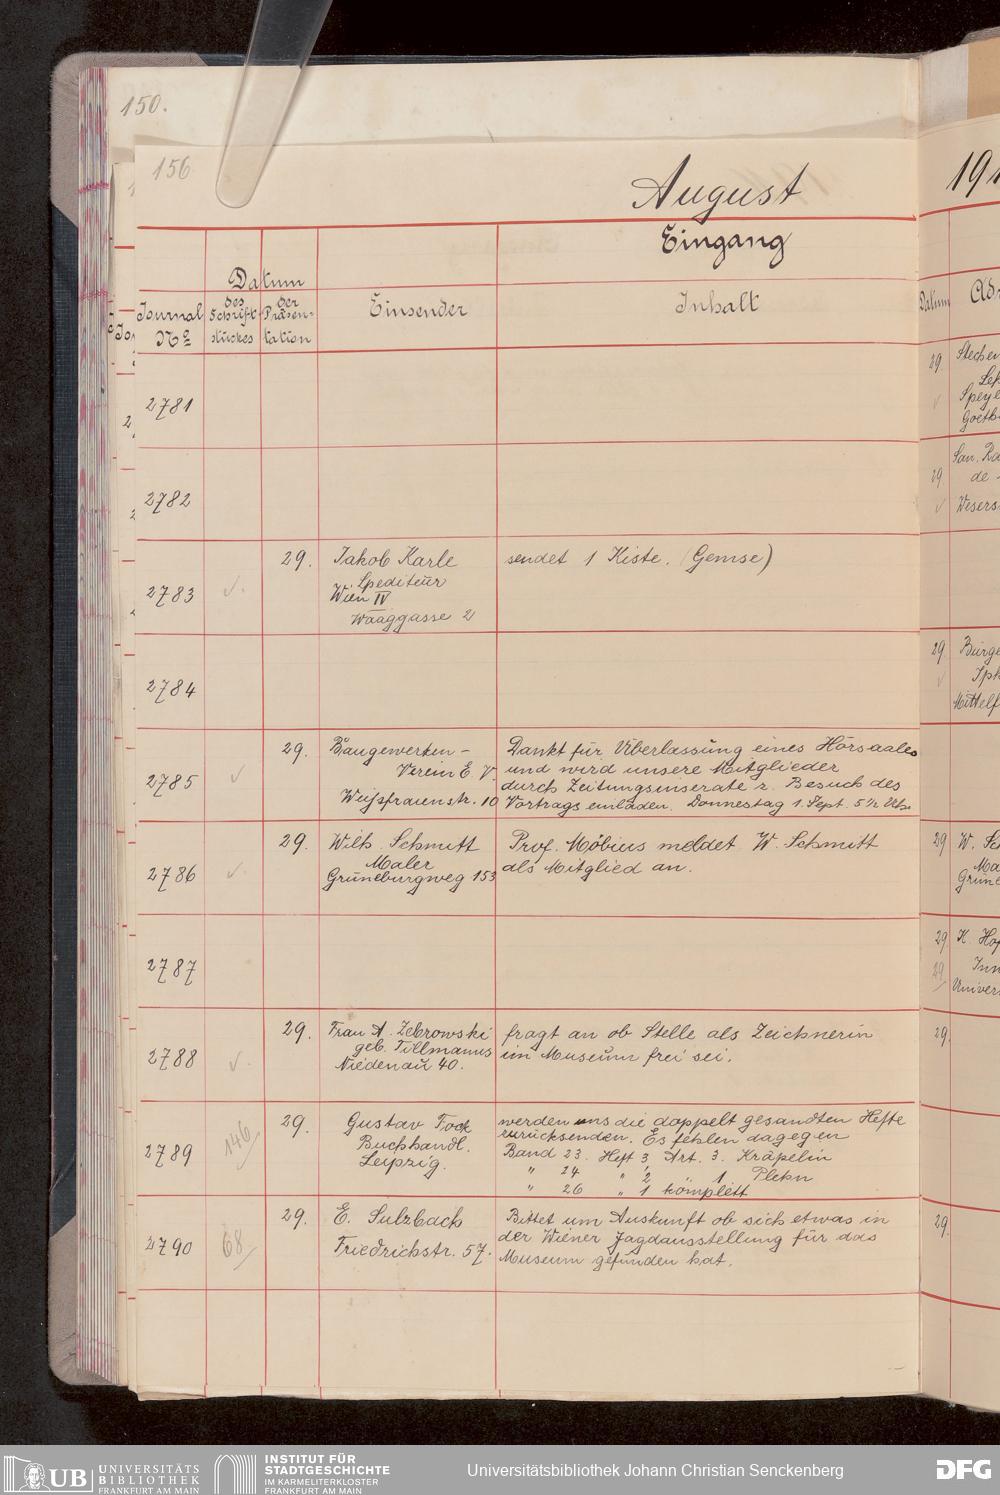 150.
156
August
191
Eingang
Datum
Journal
No
des
Schrift-
stückes
der
Präsen-
tation
Einsender
Inhalt
Datum
2781
29
2782
29
2783
29. Jakob Karle
Spediteur
Wien IV
Waaggasse 2
sendet 1 Kiste. (Gemse)
2784
29
2785
29. Baugewerken-
Verein E. V.
Weissfrauenstr. 10
Dankt für Überlassung eines Hörsaales
und wird unsere Mitglieder
durch Zeitungsinserate z. Besuch des
Vortrags einladen. Donnestag 1. Sept. 5½ Uhr
2786
29. Wilh. Schmitt
Maler
Grüneburgweg 153
Prof. Möbius meldet W. Schmitt
als Mitglied an.
29 W.
2787
29 K.
29
2788
29. Frau A. Zebrowski
geb. Tillmanns
Niedenau 40.
fragt an ob Stelle als Zeichnerin
im Museum frei sei.
29.
2789
146
29. Gustav Fock
Buchhandl.
Leipzig.
werden uns die doppelt gesandten Hefte
zurücksenden. Es fehlen dagegen
Band 23. Heft 3 Art. 3. Kräpelin
" 24 " 2 1 Plehn
" 26 " 1 komplett
2790
68
29. E. Sulzbach
Friedrichstr. 57.
Bittet um Auskunft ob sich etwas in
der Wiener Jagdausstellung für das
Museum gefunden hat.
29.
UB UNIVERSITÄTS
BIBLIOTHEK
FRANKFURT AM MAIN
INSTITUT FÜR
STADTGESCHICHTE
IM KARMELITERKLOSTER
FRANKFURT AM MAIN
Universitätsbibliothek Johann Christian Senckenberg
DFG